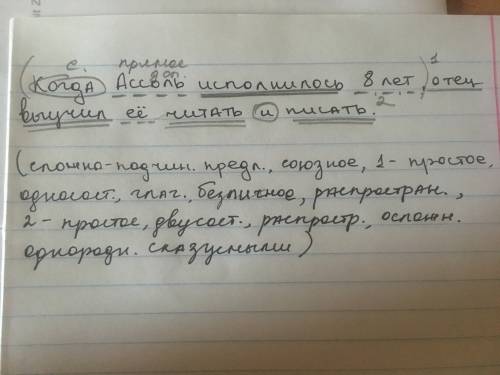 с. прямое 1
(Когда Ассоль исполнилось 8 лет), отец
доп. 2
выучил её читать и писать.
(сложно-подчин. предл., союзное, 1 - простое,
односост., глаг., безличное, распростран.,
2 - простое, двусост., распростр., осложн.
однородн. сказуемыми)